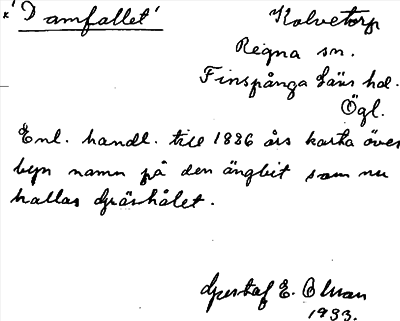 × 'Damfallet'
Kolvetorp
Regna sn.
Finspånga läns hd.
Ögl.
Enl. handl. till 1886 års karta över
byn namn på den ängbit som nu
kallas Gräshålet.
Gustaf E. Olman
1933.